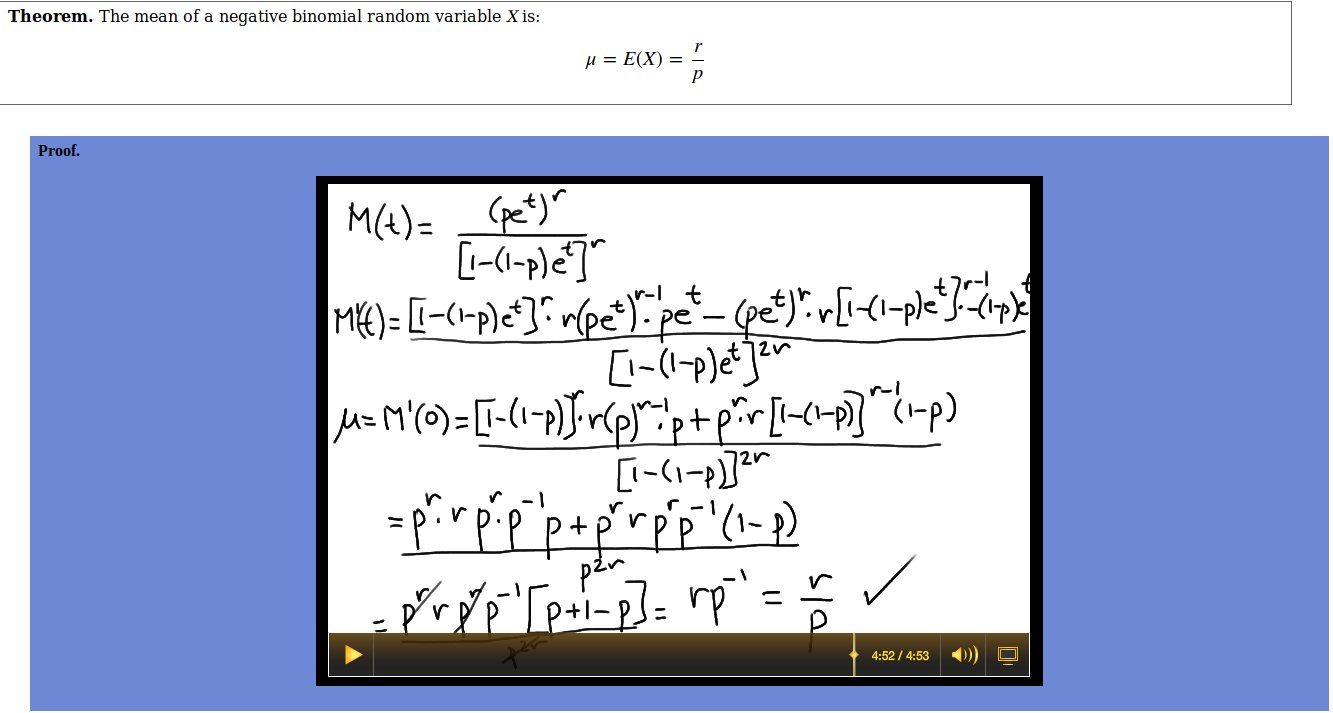 Theorem. The mean of a negative binomial random variable X is:
μ = E(X) = r/p
Proof.
M(t) = (pe^t)^r / [1-(1-p)e^t]^r
M'(t) = [1-(1-p)e^t]^r · r(pe^t)^{r-1} · pe^t - (pe^t)^r · r[1-(1-p)e^t]^{r-1} · -(1-p)e^t / [1-(1-p)e^t]^{2r}
μ = M'(0) = [1-(1-p)]^r · r(p)^{r-1} · p + p^r · r[1-(1-p)]^{r-1} (1-p) / [1-(1-p)]^{2r}
= p^r · r p^r · p^{-1} p + p^r r p^r p^{-1} (1-p) / p^{2r}
= p^r r p^r p^{-1} [p+1-p] / p^{2r} = rp^{-1} = r/p ✓
4:52 / 4:53